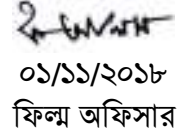 ০১/১১/২০১৮
ফিল্ম অফিসার